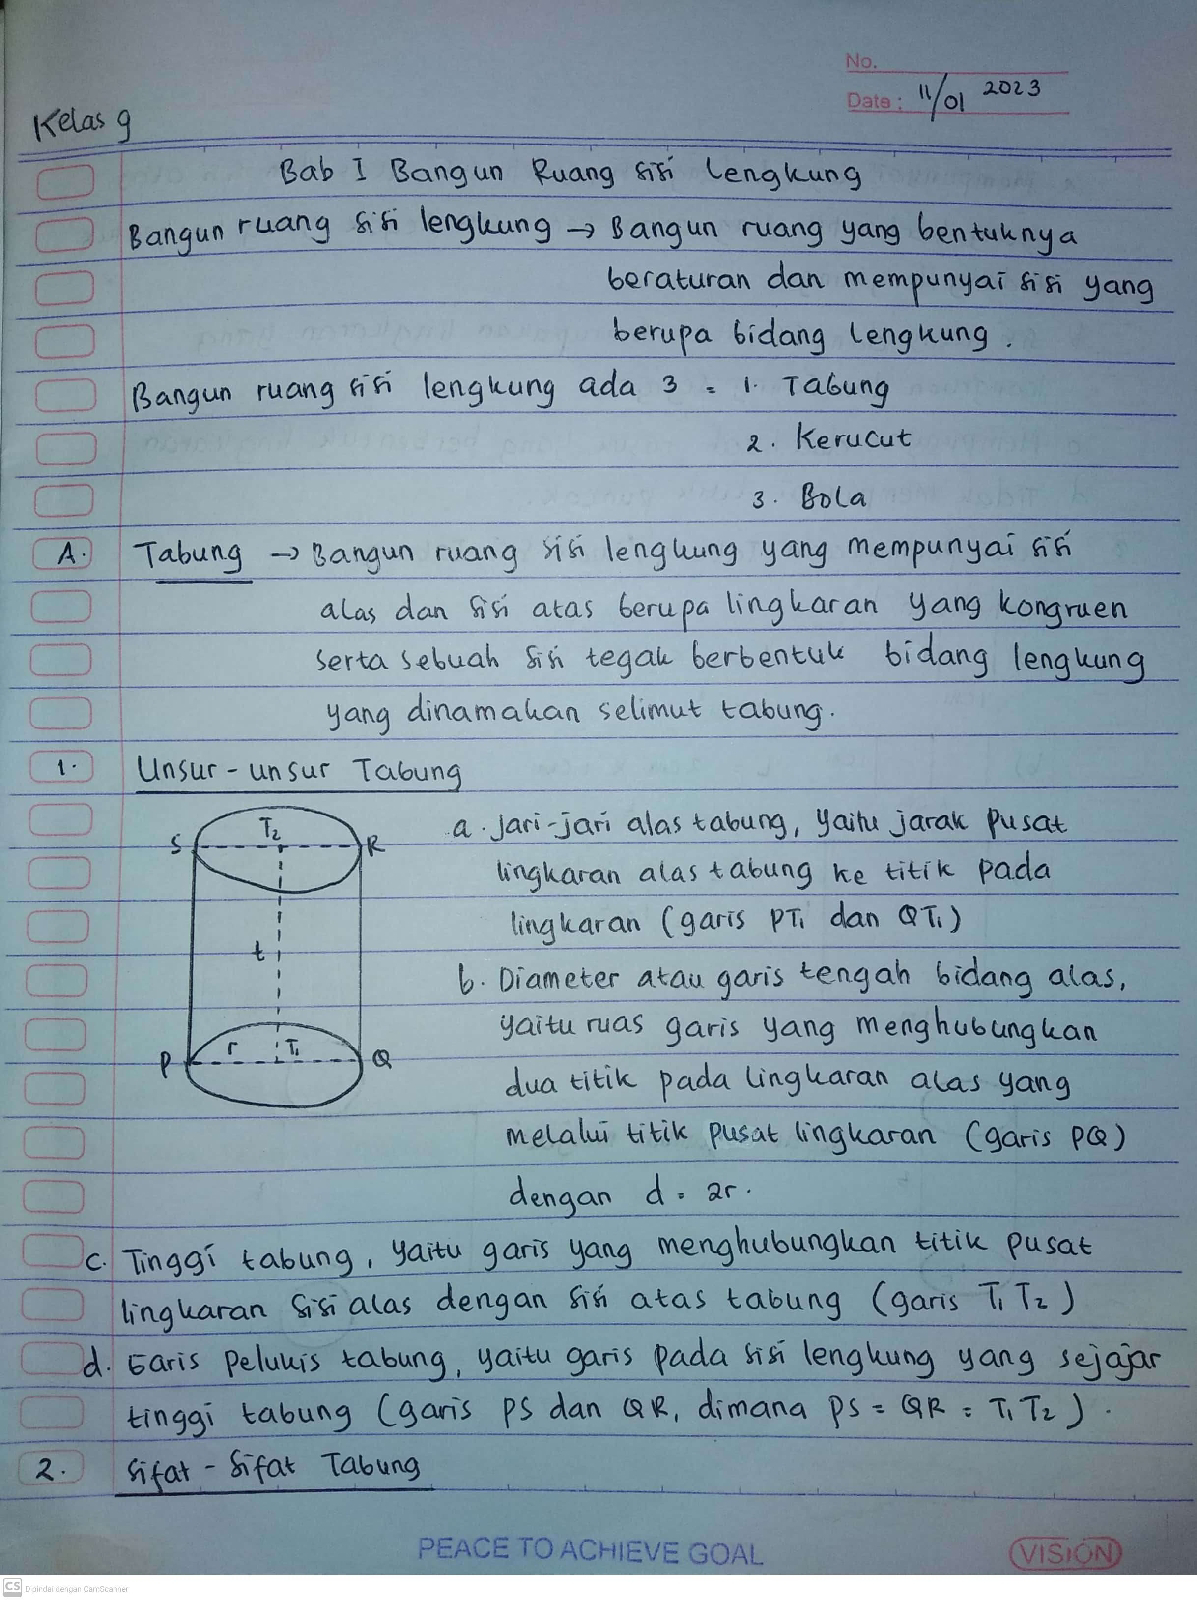 No.
Date : 11/01 2023
Kelas 9
Bab I Bangun Ruang sisi lengkung
Bangun ruang sisi lengkung → Bangun ruang yang bentuknya
beraturan dan mempunyai sisi yang
berupa bidang lengkung.
Bangun ruang sisi lengkung ada 3 = 1. Tabung
2. Kerucut
3. Bola
A. Tabung → Bangun ruang sisi lengkung yang mempunyai sisi
alas dan sisi atas berupa lingkaran yang kongruen
serta sebuah sisi tegak berbentuk bidang lengkung
yang dinamakan selimut tabung.
1. Unsur-unsur Tabung
S T2 R
t
P r T1 Q
a. Jari-jari alas tabung, yaitu jarak pusat
lingkaran alas tabung ke titik pada
lingkaran (garis PT1 dan QT1)
b. Diameter atau garis tengah bidang alas,
yaitu ruas garis yang menghubungkan
dua titik pada lingkaran alas yang
melalui titik pusat lingkaran (garis PQ)
dengan d = 2r.
c. Tinggi tabung, yaitu garis yang menghubungkan titik pusat
lingkaran sisi alas dengan sisi atas tabung (garis T1 T2)
d. Garis pelukis tabung, yaitu garis pada sisi lengkung yang sejajar
tinggi tabung (garis PS dan QR, dimana PS = QR = T1 T2).
2. Sifat-Sifat Tabung
PEACE TO ACHIEVE GOAL
VISION
CS Dipindai dengan CamScanner